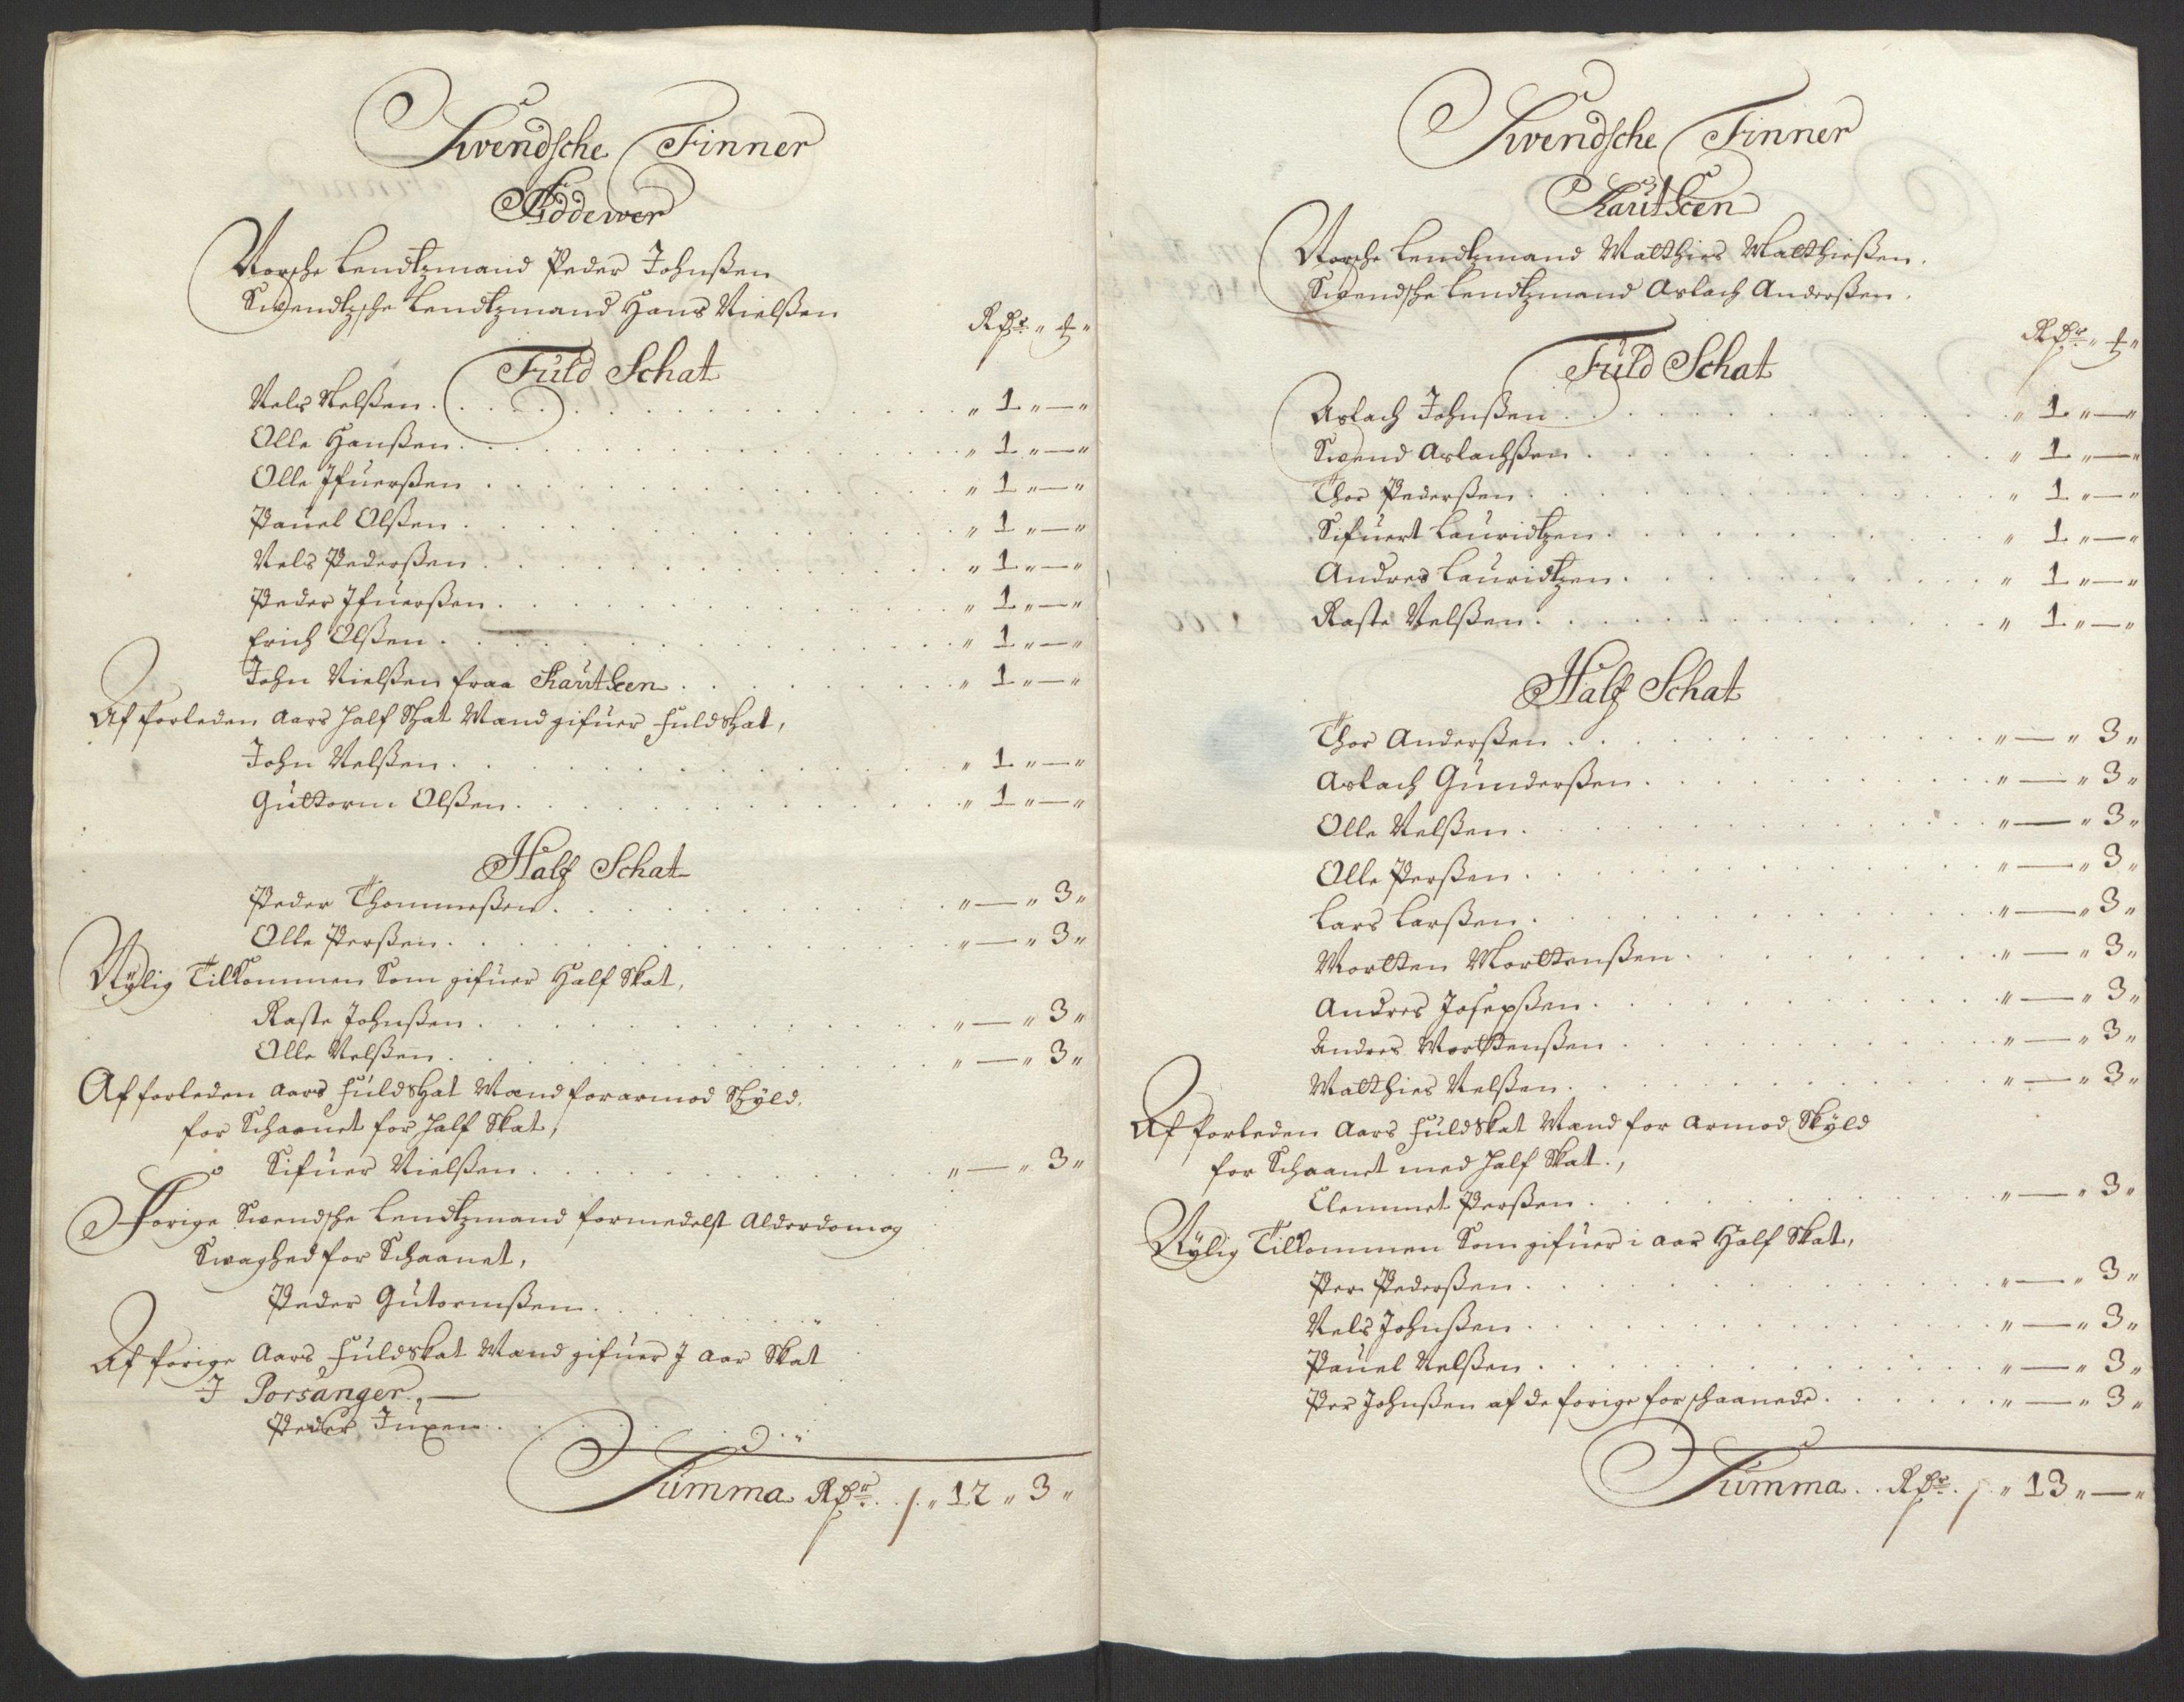 Swendsche Finner
Aiddewer
Norsche Lendtzmand Peder Johnßen
Swendtzsche Lendtzmand Hans Nielßen
Rdr " ƒ "
Fuld Schat
Nels Nelßen . . . " 1 " — "
Olle Hanßen . . . " 1 " — "
Olle Ifuerßen . . . " 1 " — "
Pauel Olßen . . . " 1 " — "
Nels Pederßen . . . " 1 " — "
Peder Ifuerßen . . . " 1 " — "
Erich Olßen . . . " 1 " — "
John Nielßen fraa Kautkeen . . . " 1 " — "
Af forleden Aars half Skat Mænd gifuer fuld Skat,
John Nelßen . . . " 1 " — "
Guttorm Olßen . . . " 1 " — "
Half Schat
Peder Thommeßen . . . " — " 3 "
Olle Perßen . . . " — " 3 "
Nÿlig Tilkommen Som gifuer Half Skat,
Raste Johnßen . . . " — " 3 "
Olle Nelßen . . . " — " 3 "
Af forleden Aars fuld Skat Mænd for armod Skÿld.
for Schaanet for half Skat,
Sifuer Nielßen . . . " — " 3 "
Forige Swendsche Lendtzmand formedelst Alderdom og
Swaghed for Schaanet,
Peder Gutormßen . . . "
Af forige Aars fuld Skat Mænd gifuer I aar Skat
I Porsanger, —
Peder Juxen . . . "
Summa Rdr . . " 12 " 3 "
Swendsche Finner
Kautkeen
Norsche Lendtzmand Matthies Matthießen.
Swendsche Lendtzmand Aslach Anderßen.
Rdr " ƒ "
Fuld Schat
Aslach Johnßen . . . " 1 " — "
Swend Aslachßen . . . " 1 " — "
Thor Pederßen . . . " 1 " — "
Sifuert Lauridtzen . . . " 1 " — "
Andres Lauridtzen . . . " 1 " — "
Raste Nelßen . . . " 1 " — "
Half Schat
Thor Anderßen . . . " — " 3 "
Aslach Gunderßen . . . " — " 3 "
Olle Nelßen . . . " — " 3 "
Olle Perßen . . . " — " 3 "
Lars Larßen . . . " — " 3 "
Mortten Morttenßen . . . " — " 3 "
Andres Josepßen . . . " — " 3 "
Andres Morttenßen . . . " — " 3 "
Matthies Nelßen . . . " — " 3 "
Af forleden Aars fuld Skat Mænd for armod Skÿld
for Schaanet med half Skat.,
Clemmet Perßen . . . " — " 3 "
Nÿlig Tilkommen Som gifuer i aar Half Skat,
Per Pederßen . . . " — " 3 "
Nels Johnßen . . . " — " 3 "
Pauel Nelßen . . . " — " 3 "
Per Johnßen af de forige forschaanede . . . " — " 3 "
Summa . . Rdr . " 13 " — "